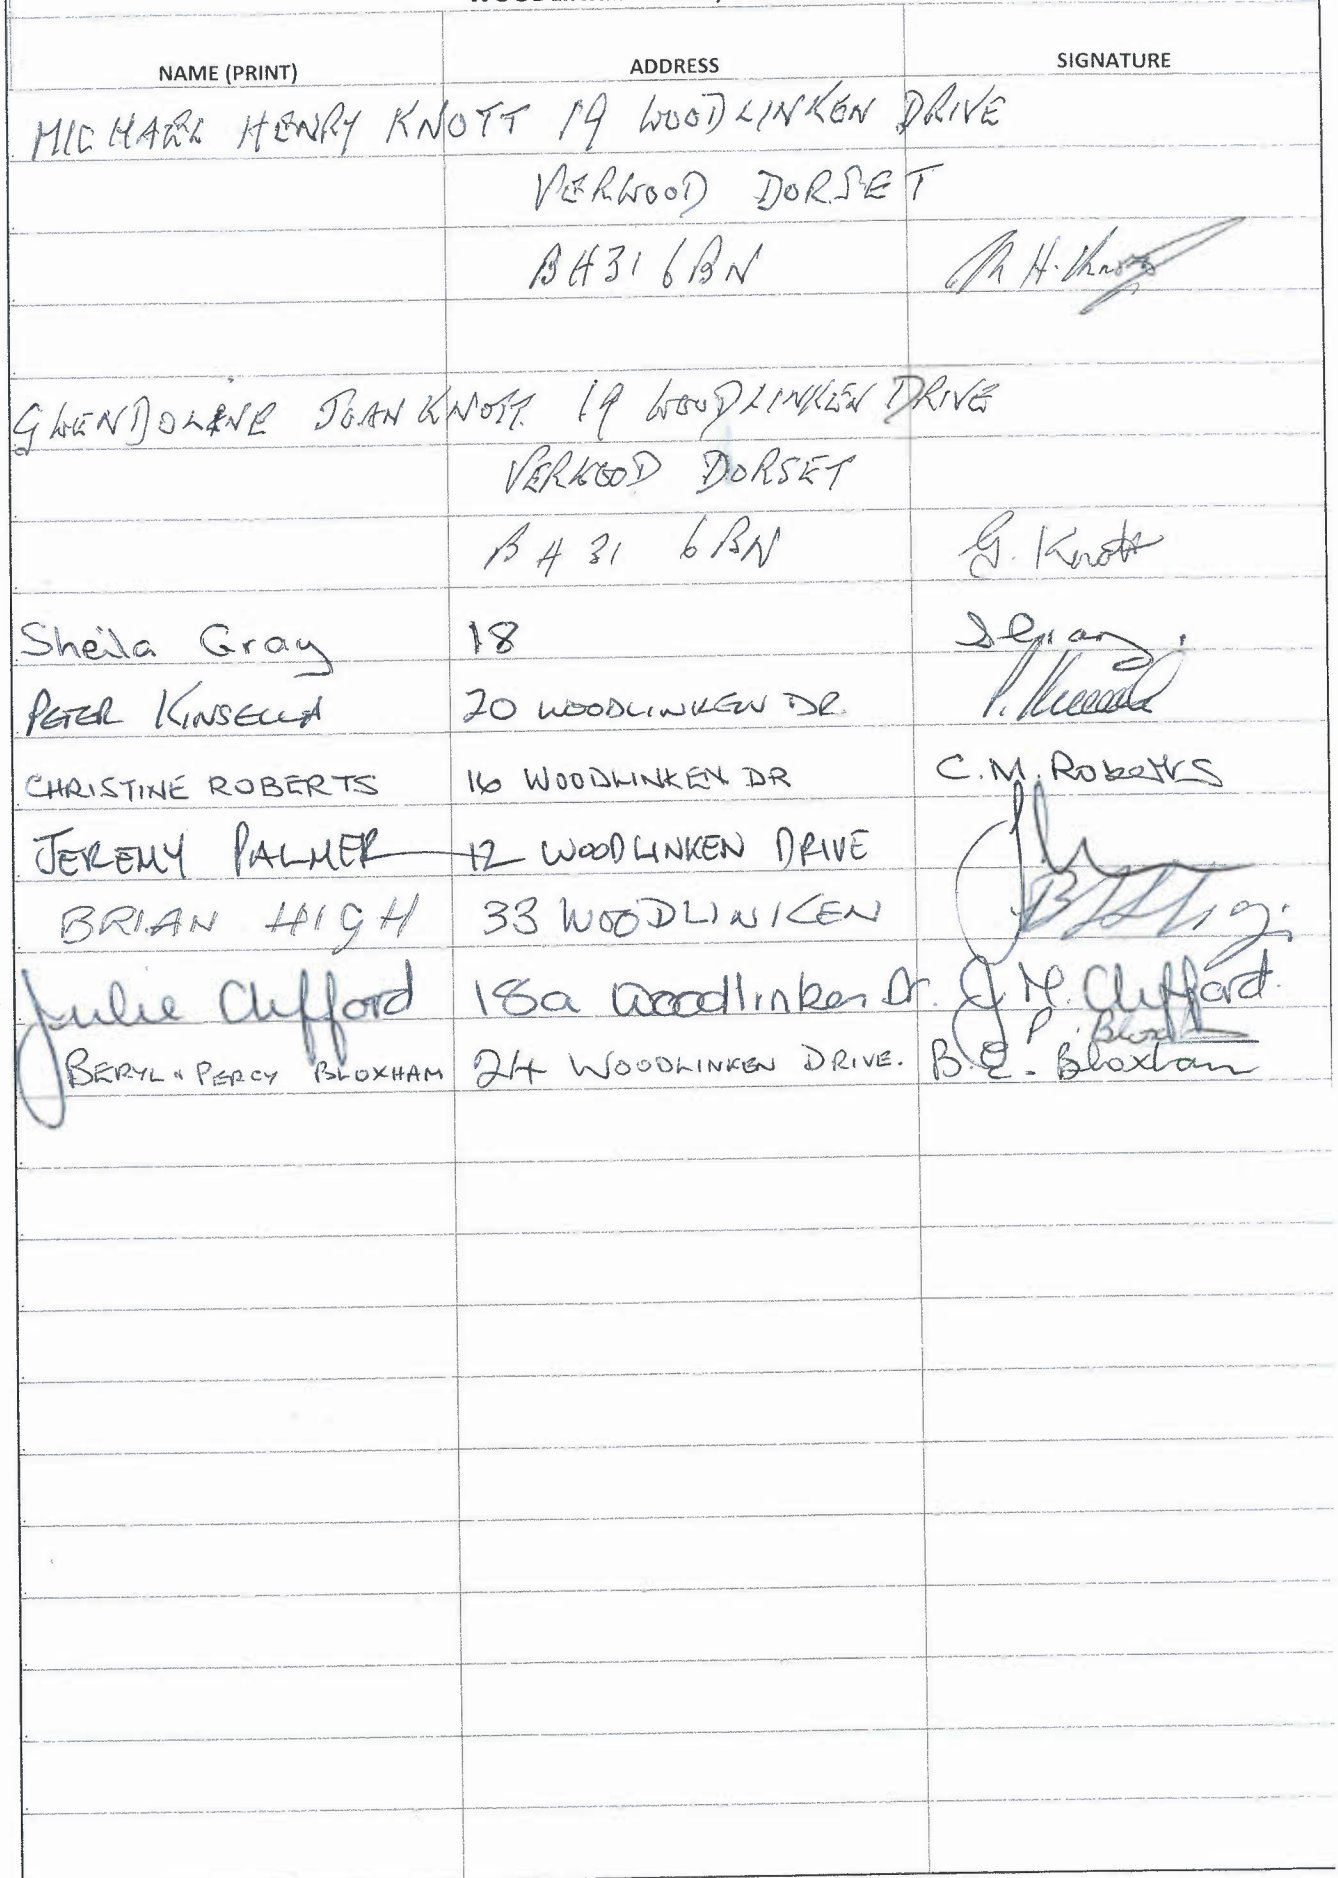 NAME (PRINT) ADDRESS SIGNATURE
MICHAEL HENRY KNOTT 19 WOODLINKEN DRIVE
VERWOOD DORSET
BH31 6BN M H. Knott
GWENDOLINE JEAN KNOTT. 19 WOODLINKEN DRIVE
VERWOOD DORSET
BH 31 6BN G. Knott
Sheila Gray 18 S Gray.
PETER KINSELLA 20 WOODLINKEN DR. P.
CHRISTINE ROBERTS 16 WOODLINKEN DR C.M. Roberts
JEREMY PALMER 12 WOODLINKEN DRIVE
BRIAN HIGH 33 WOODLINKEN
Julie Clifford 18a Woodlinken Dr. J M. Clifford.
P. Bloxham
BERYL & PERCY BLOXHAM 24 WOODLINKEN DRIVE. B.E. Bloxham